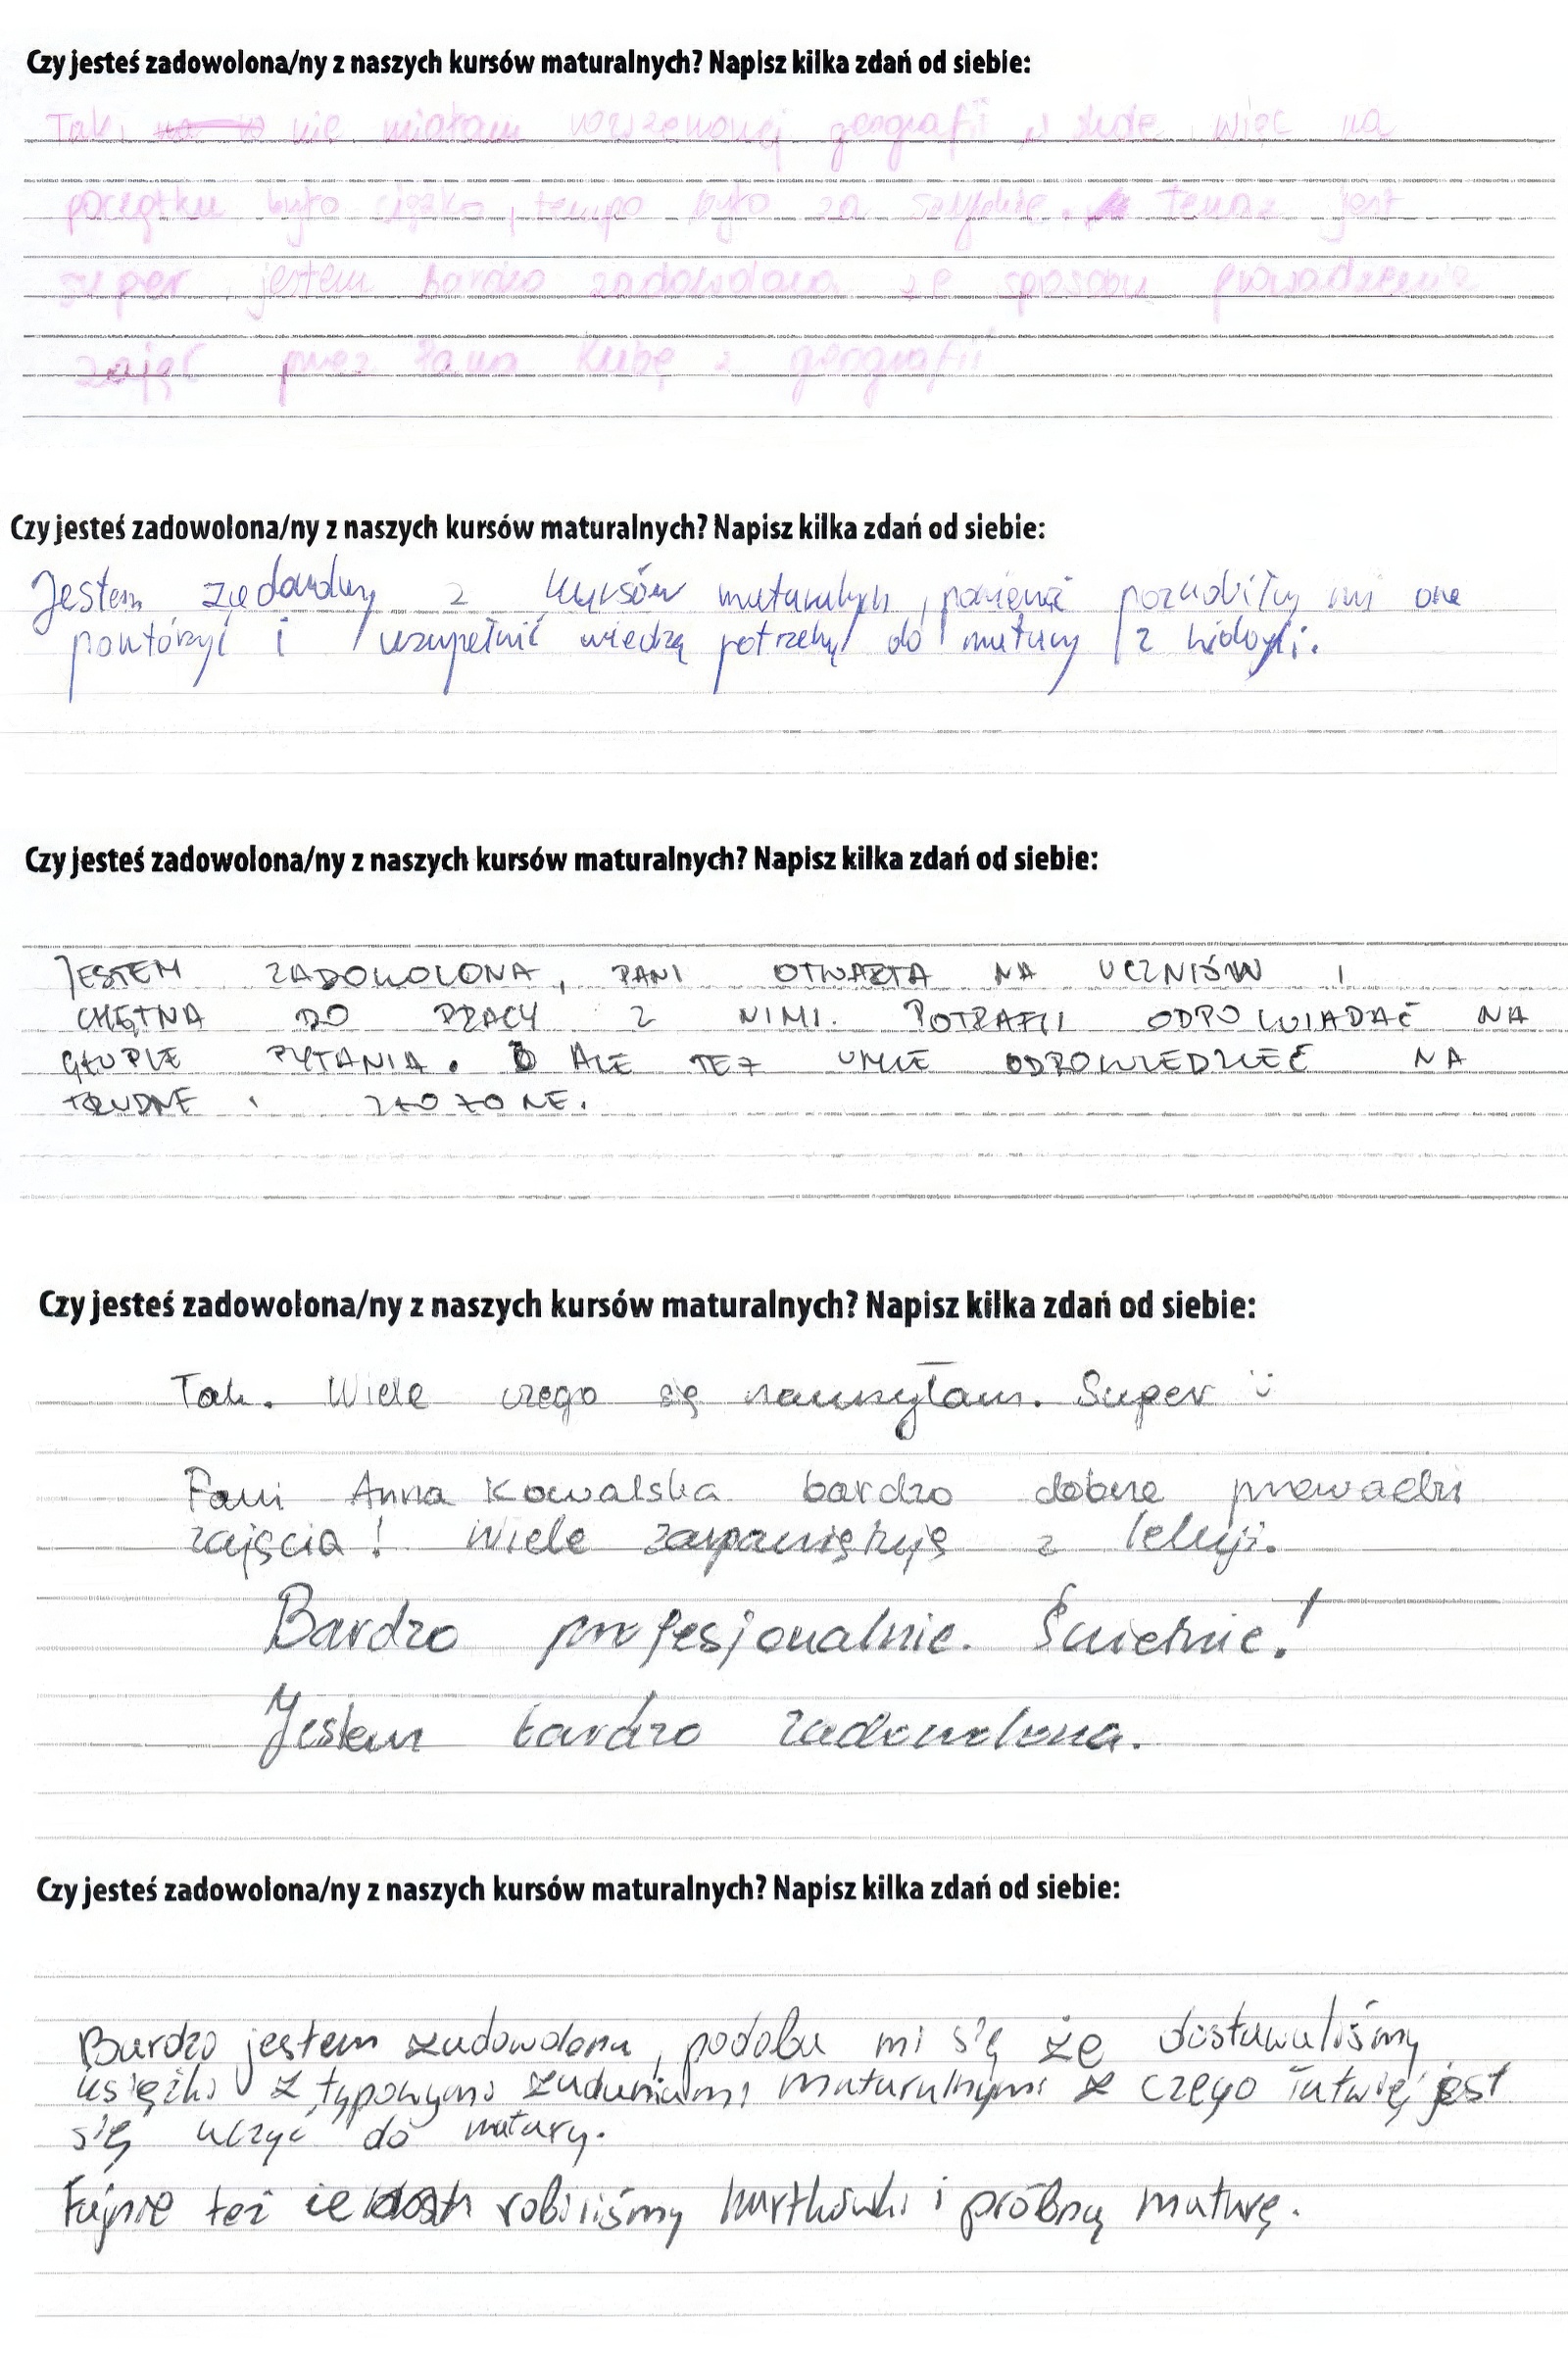 Czy jesteś zadowolona/ny z naszych kursów maturalnych? Napisz kilka zdań od siebie:
Tak, nie miałam rozszerzonej geografii w szkole, więc na
początku było ciężko, tempo było za szybkie. teraz jest
super, jestem bardzo zadowolona ze sposobu prowadzenia
zajęć przez Pana Kubę z geografii
Czy jesteś zadowolona/ny z naszych kursów maturalnych? Napisz kilka zdań od siebie:
Jestem zadowolony z kursów maturalnych, ponieważ pozwoliły mi one
powtórzyć i uzupełnić wiedzę potrzebną do matury z biologii.
Czy jesteś zadowolona/ny z naszych kursów maturalnych? Napisz kilka zdań od siebie:
JESTEM ZADOWOLONA, PANI OTWARTA NA UCZNIÓW I
CHĘTNA DO PRACY Z NIMI. POTRAFII ODPOWIADAĆ NA
GŁUPIE PYTANIA. ALE TEŻ UMIE ODPOWIEDZIEĆ NA
TRUDNE I ZŁOŻONE.
Czy jesteś zadowolona/ny z naszych kursów maturalnych? Napisz kilka zdań od siebie:
Tak. Wiele czego się nauczyłam. Super :)
Pani Anna Kowalska bardzo dobrze prowadzi
zajęcia! Wiele zapamiętuję z lekcji.
Bardzo profesjonalnie. Świetnie!
Jestem bardzo zadowolona.
Czy jesteś zadowolona/ny z naszych kursów maturalnych? Napisz kilka zdań od siebie:
Bardzo jestem zadowolona, podoba mi się że dostawaliśmy
książki z typowymi zadaniami maturalnymi z czego łatwiej jest
się uczyć do matury.
Fajnie też że robiliśmy kartkówki i próbną maturę.